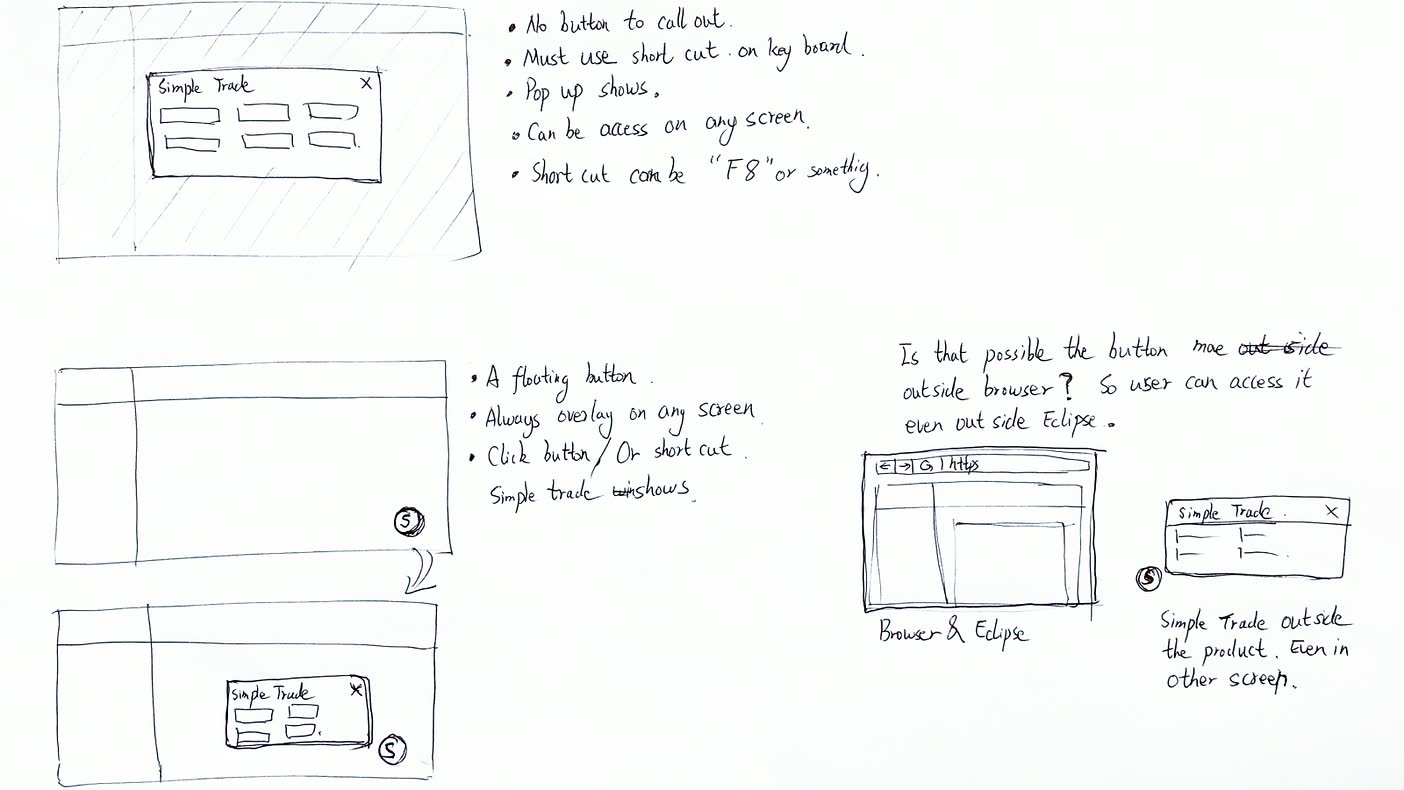 Simple Trade X
• No button to call out.
• Must use short cut on key board.
• Pop up shows.
• Can be access on any screen.
• Short cut can be "F8" or somethig.
• A floating button.
• Always overlay on any screen
• Click button / Or short cut.
Simple trade shows.
S
Simple Trade X
S
Is that possible the button move out side
outside browser? So user can access it
even out side Eclipse.
← → G https
Browser & Eclipse
Simple Trade. X
S
Simple Trade outside
the product. Even in
other screen.